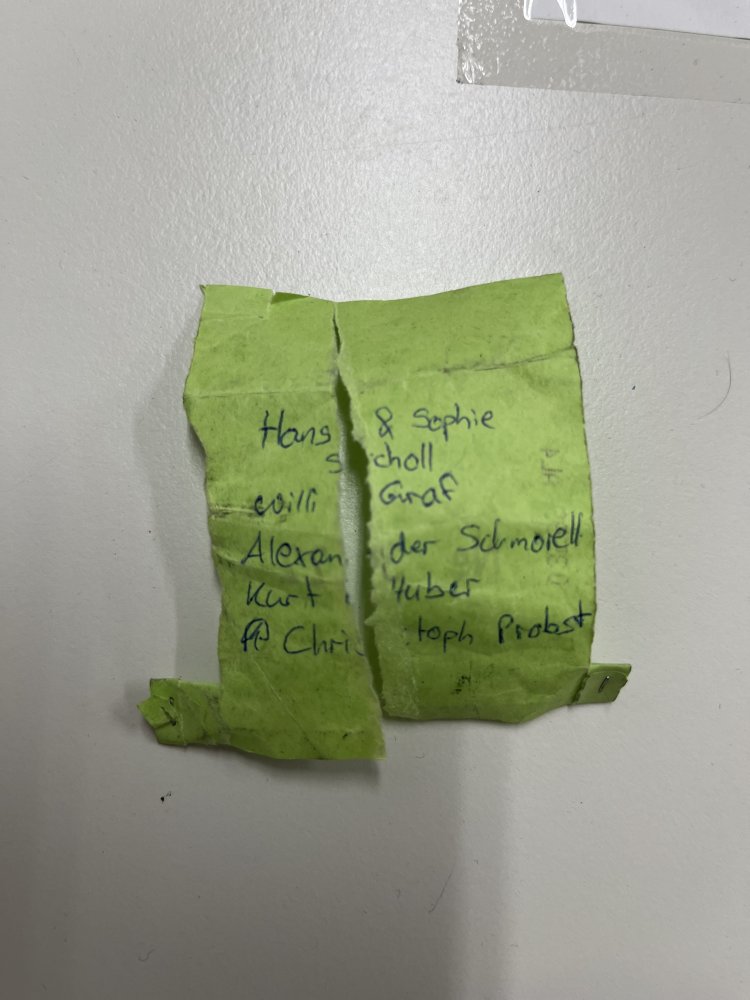 Hans & Sophie
Scholl
Willi Graf
Alexander Schmorell
Kurt Huber
Christoph Probst